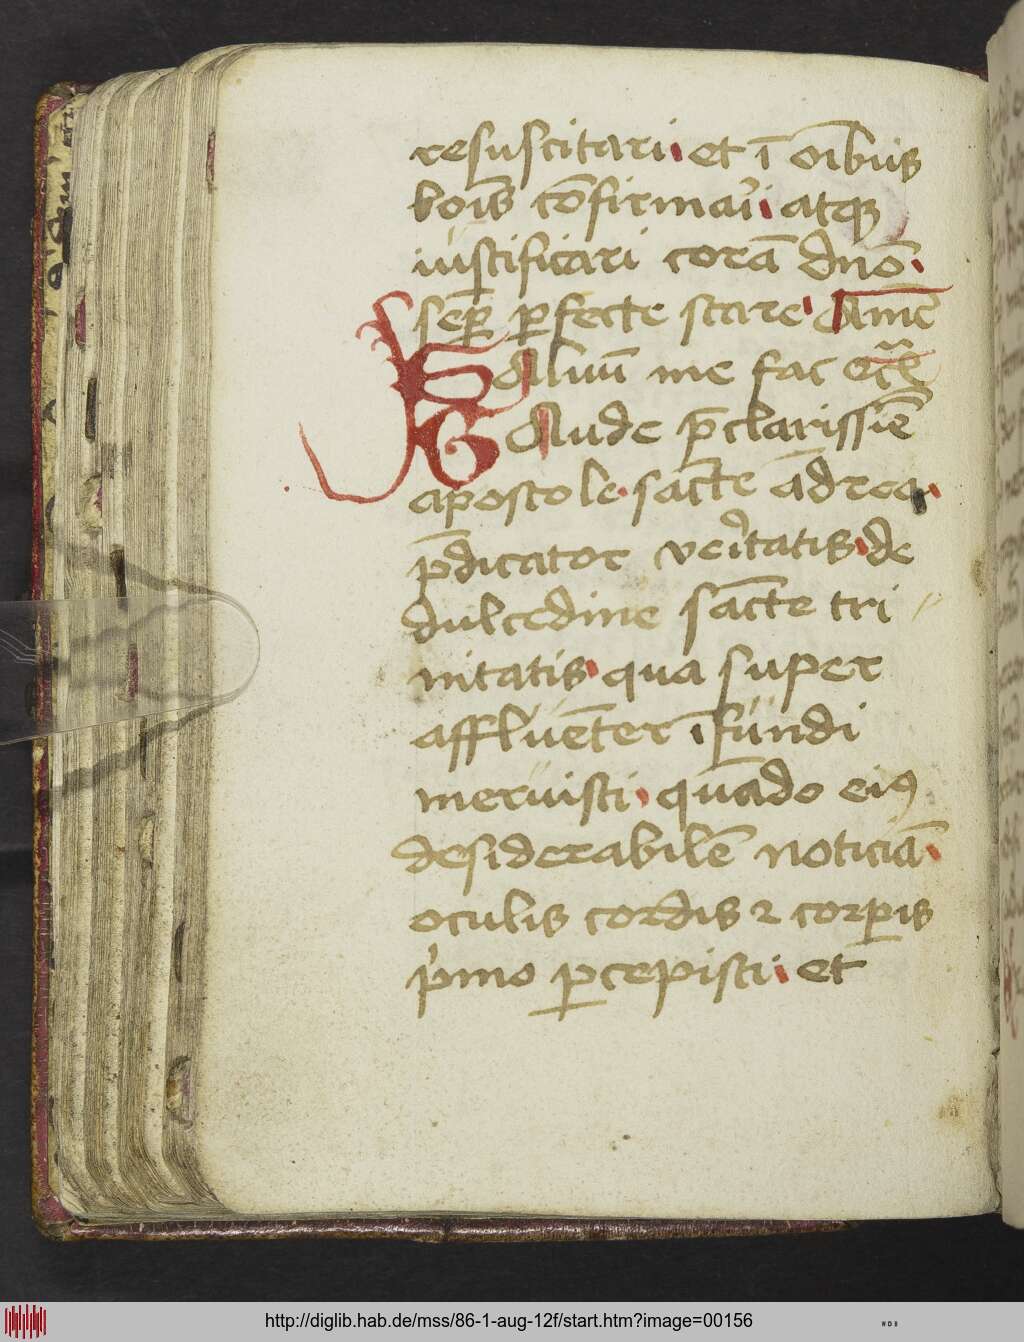 resuscitari et ī oībus
boīs cōfirmari atqꝫ
iustificari corā dnō
semꝑ ꝑfecte stare Amē
Saluū me fac etc̄
Gaude p̄clarissiē
apostole sācte ādrea
p̄dicator veritatis de
dulcedine sācte tri
nitatis qua super
affluēter īfundi
meruisti quādo eiꝰ
desiderabilē noticiā
oculis cordis ⁊ corꝑis
p̓mo ꝑcepisti et
http://diglib.hab.de/mss/86-1-aug-12f/start.htm?image=00156
WDB